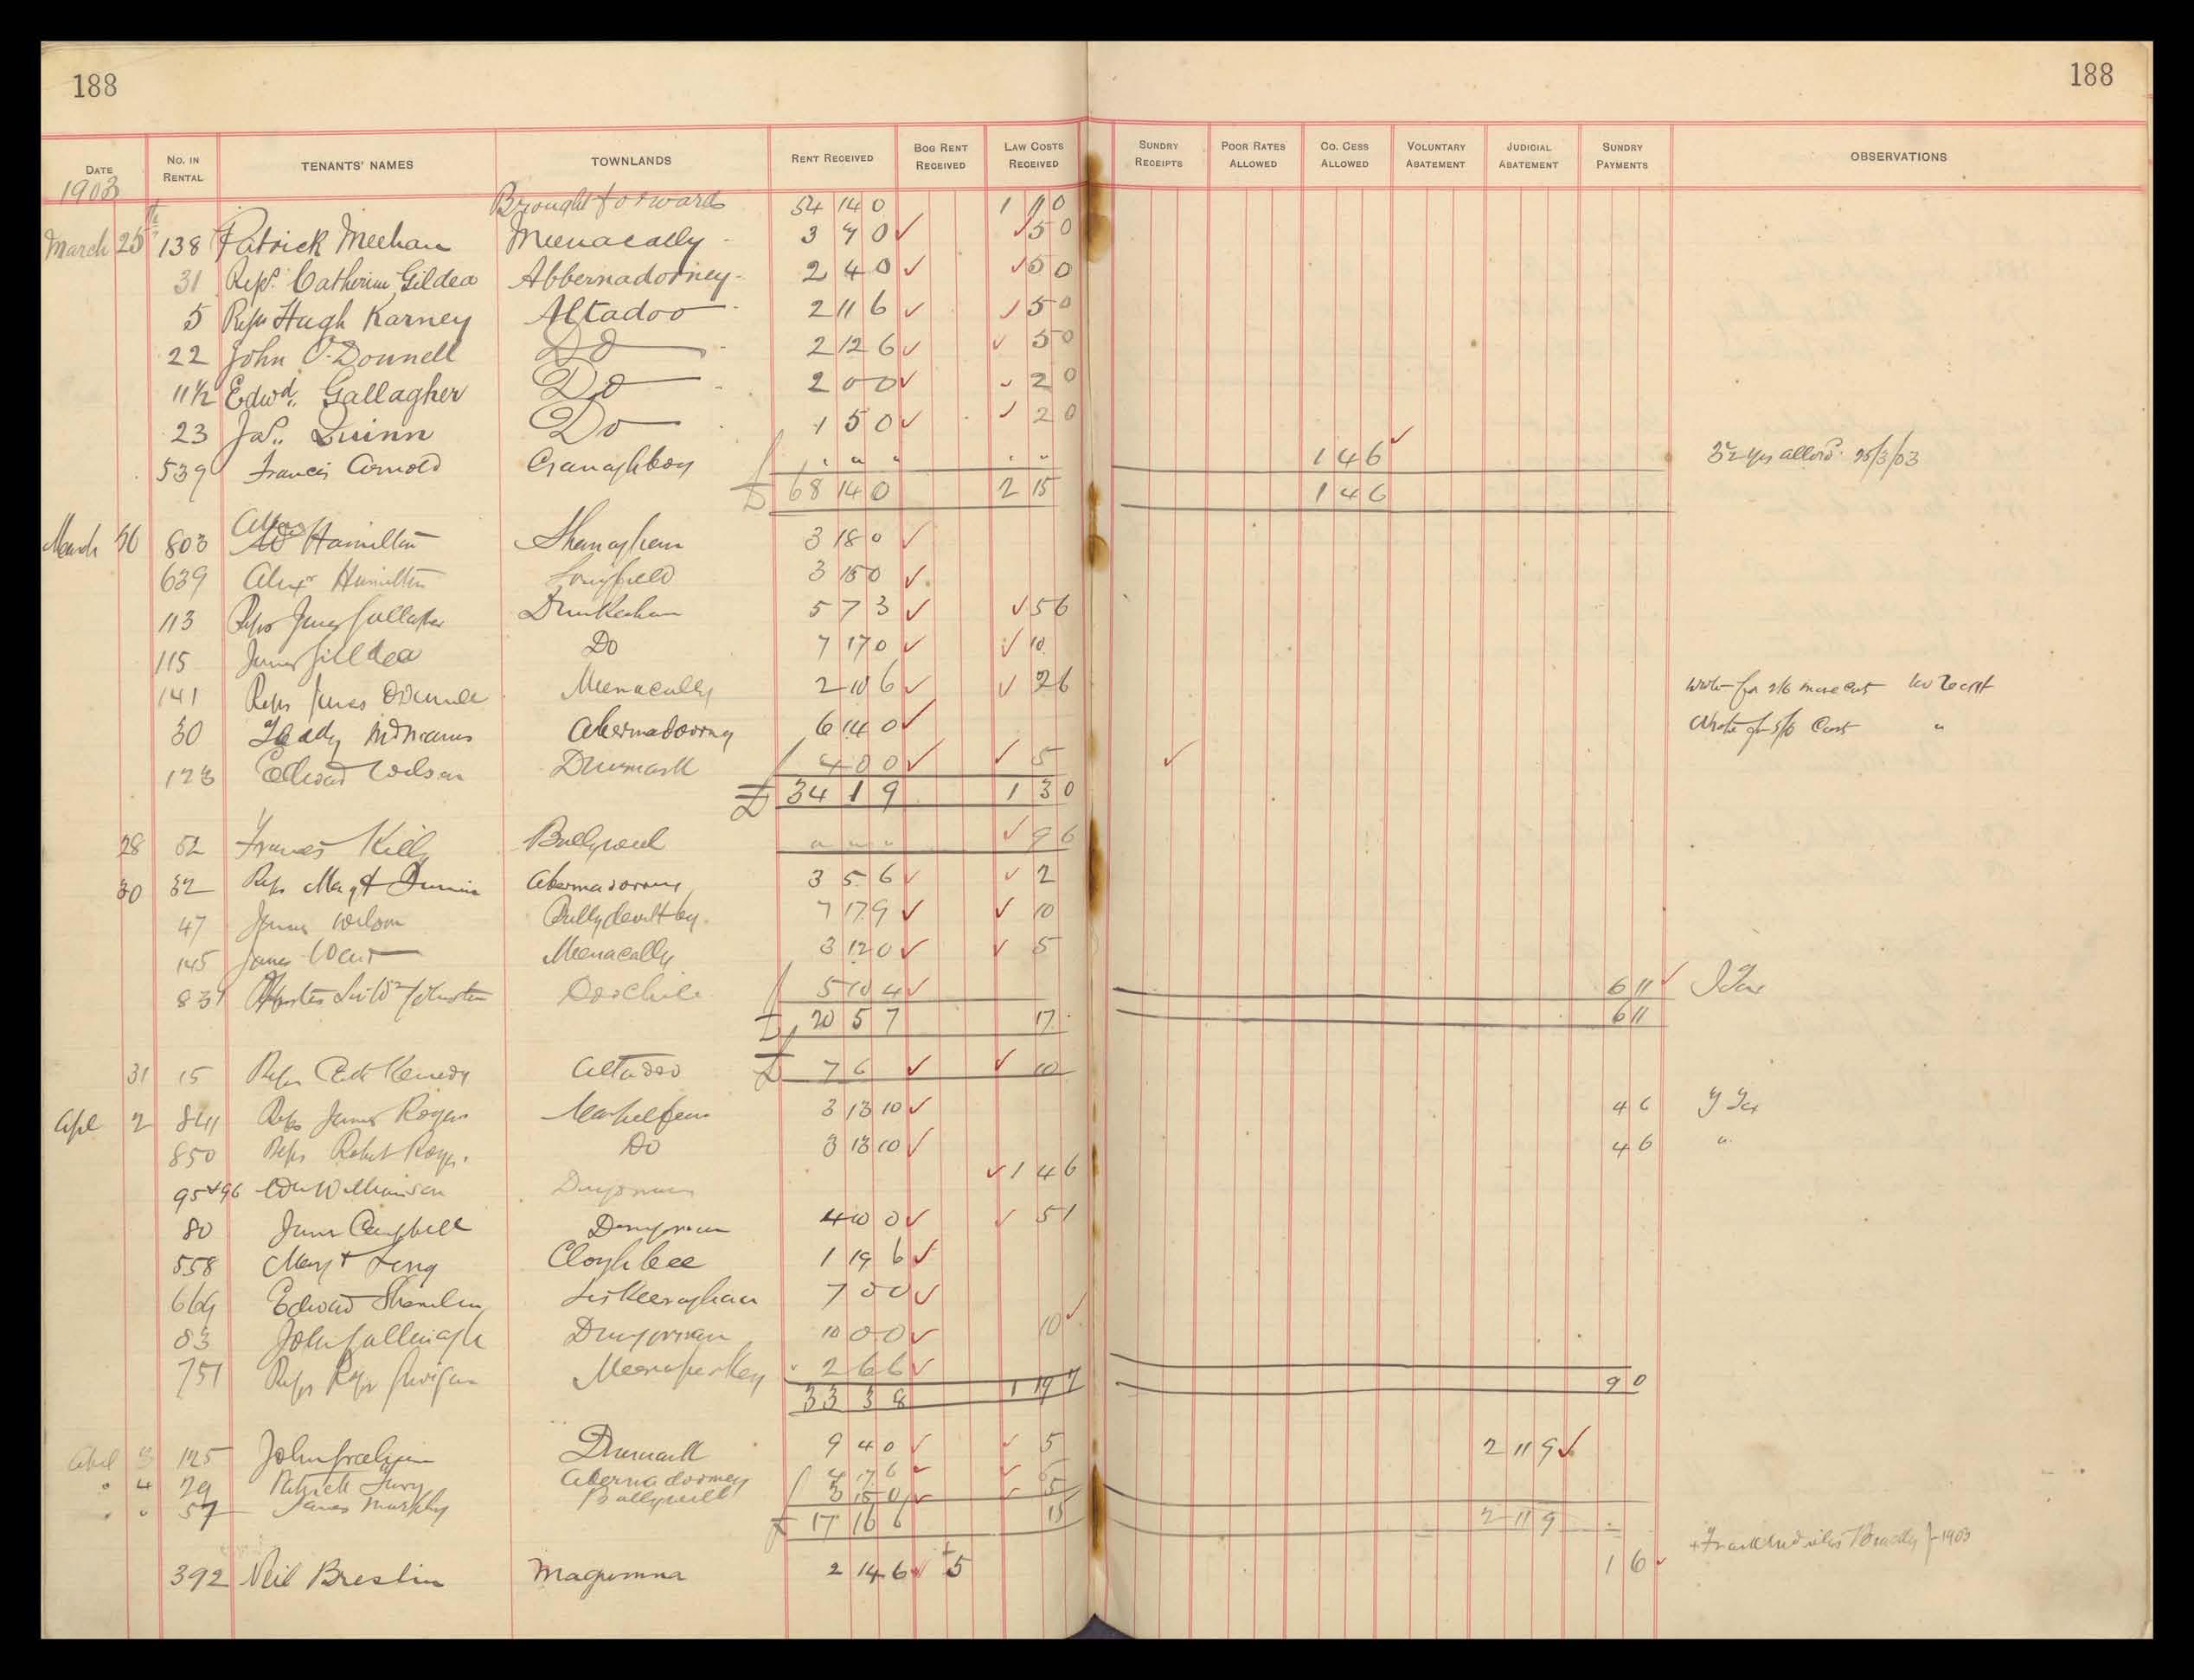 188 188
DATE NO. IN RENTAL TENANTS' NAMES TOWNLANDS RENT RECEIVED BOG RENT RECEIVED LAW COSTS RECEIVED SUNDRY RECEIPTS POOR RATES ALLOWED CO. CESS ALLOWED VOLUNTARY ABATEMENT JUDICIAL ABATEMENT SUNDRY PAYMENTS OBSERVATIONS
1903
Brought forward 54 14 0 1 11 0
March 25th 138 Patrick Meehan Meenacally 3 7 0 5 0
31 Reps. Catherine Gildea Abbernadorney 2 4 0 5 0
5 Reps Hugh Karney Altadoo 2 11 6 5 0
22 John O'Donnell Do 2 12 6 5 0
11½ Edwd. Gallagher Do 2 0 0 2 0
23 Jas. Quinn Do 1 5 0 2 0
539 Francis Arnold Cranaghboy " " " " " 1 4 6 25/3/03
£ 68 14 0 2 15 1 4 6
March 26 803 Hamilton Shanaghan 3 18 0
639 Alexr Hamilton Longfield 3 15 0
113 Reps James Gallagher Drumkeelan 5 7 3 5 6
115 James Gildea Do 7 17 0 10
141 Reps James O'Donnell Meenacally 2 10 6 2 6 Wrote for 2/6 more Cost
30 Thady McManus Abernadoorney 6 14 0 Wrote for 5/6 Cost "
123 Edward Wilson Drumark 4 0 0 5
£ 34 1 9 1 3 0
28 52 Francis Kelly Ballyweel " " " 9 6
30 32 Reps Margt Abernadoorney 3 5 6 2
47 James Wilson Ballydevitt 7 17 9 10
145 James Ward Meenacally 3 12 0 5
831 Johnston 5 10 4 6 11 I Tax
20 5 7 17 6 11
31 15 Reps Patk Kennedy Altadoo £ 7 6 10
Apl 2 841 Reps James Rogers 3 13 10 4 6 I Tax
850 Reps Robert Rogers Do 3 13 10 4 6 "
95+96 Wm Wilkinson Drumgorman 1 4 6
80 James Campbell Drumgorman 4 10 0 5 1
558 Margt Long Cloghbee 1 19 6
664 Edward Liskeeraghan 7 0 0
83 John Gallinagh Drumgorman 10 0 0 10
751 Reps 2 6 6
33 3 8 1 19 7 9 0
April 3 125 John Drumark 9 4 0 5 2 11 9
" 4 29 Patrick Furey Abernadoorney 4 17 6 5
" " 57 James Murphy Ballyweel 3 15 0 5
£ 17 16 6 15 2 11 9
392 Neil Breslin Magumna 2 14 6 + 5 1 6 + 1903